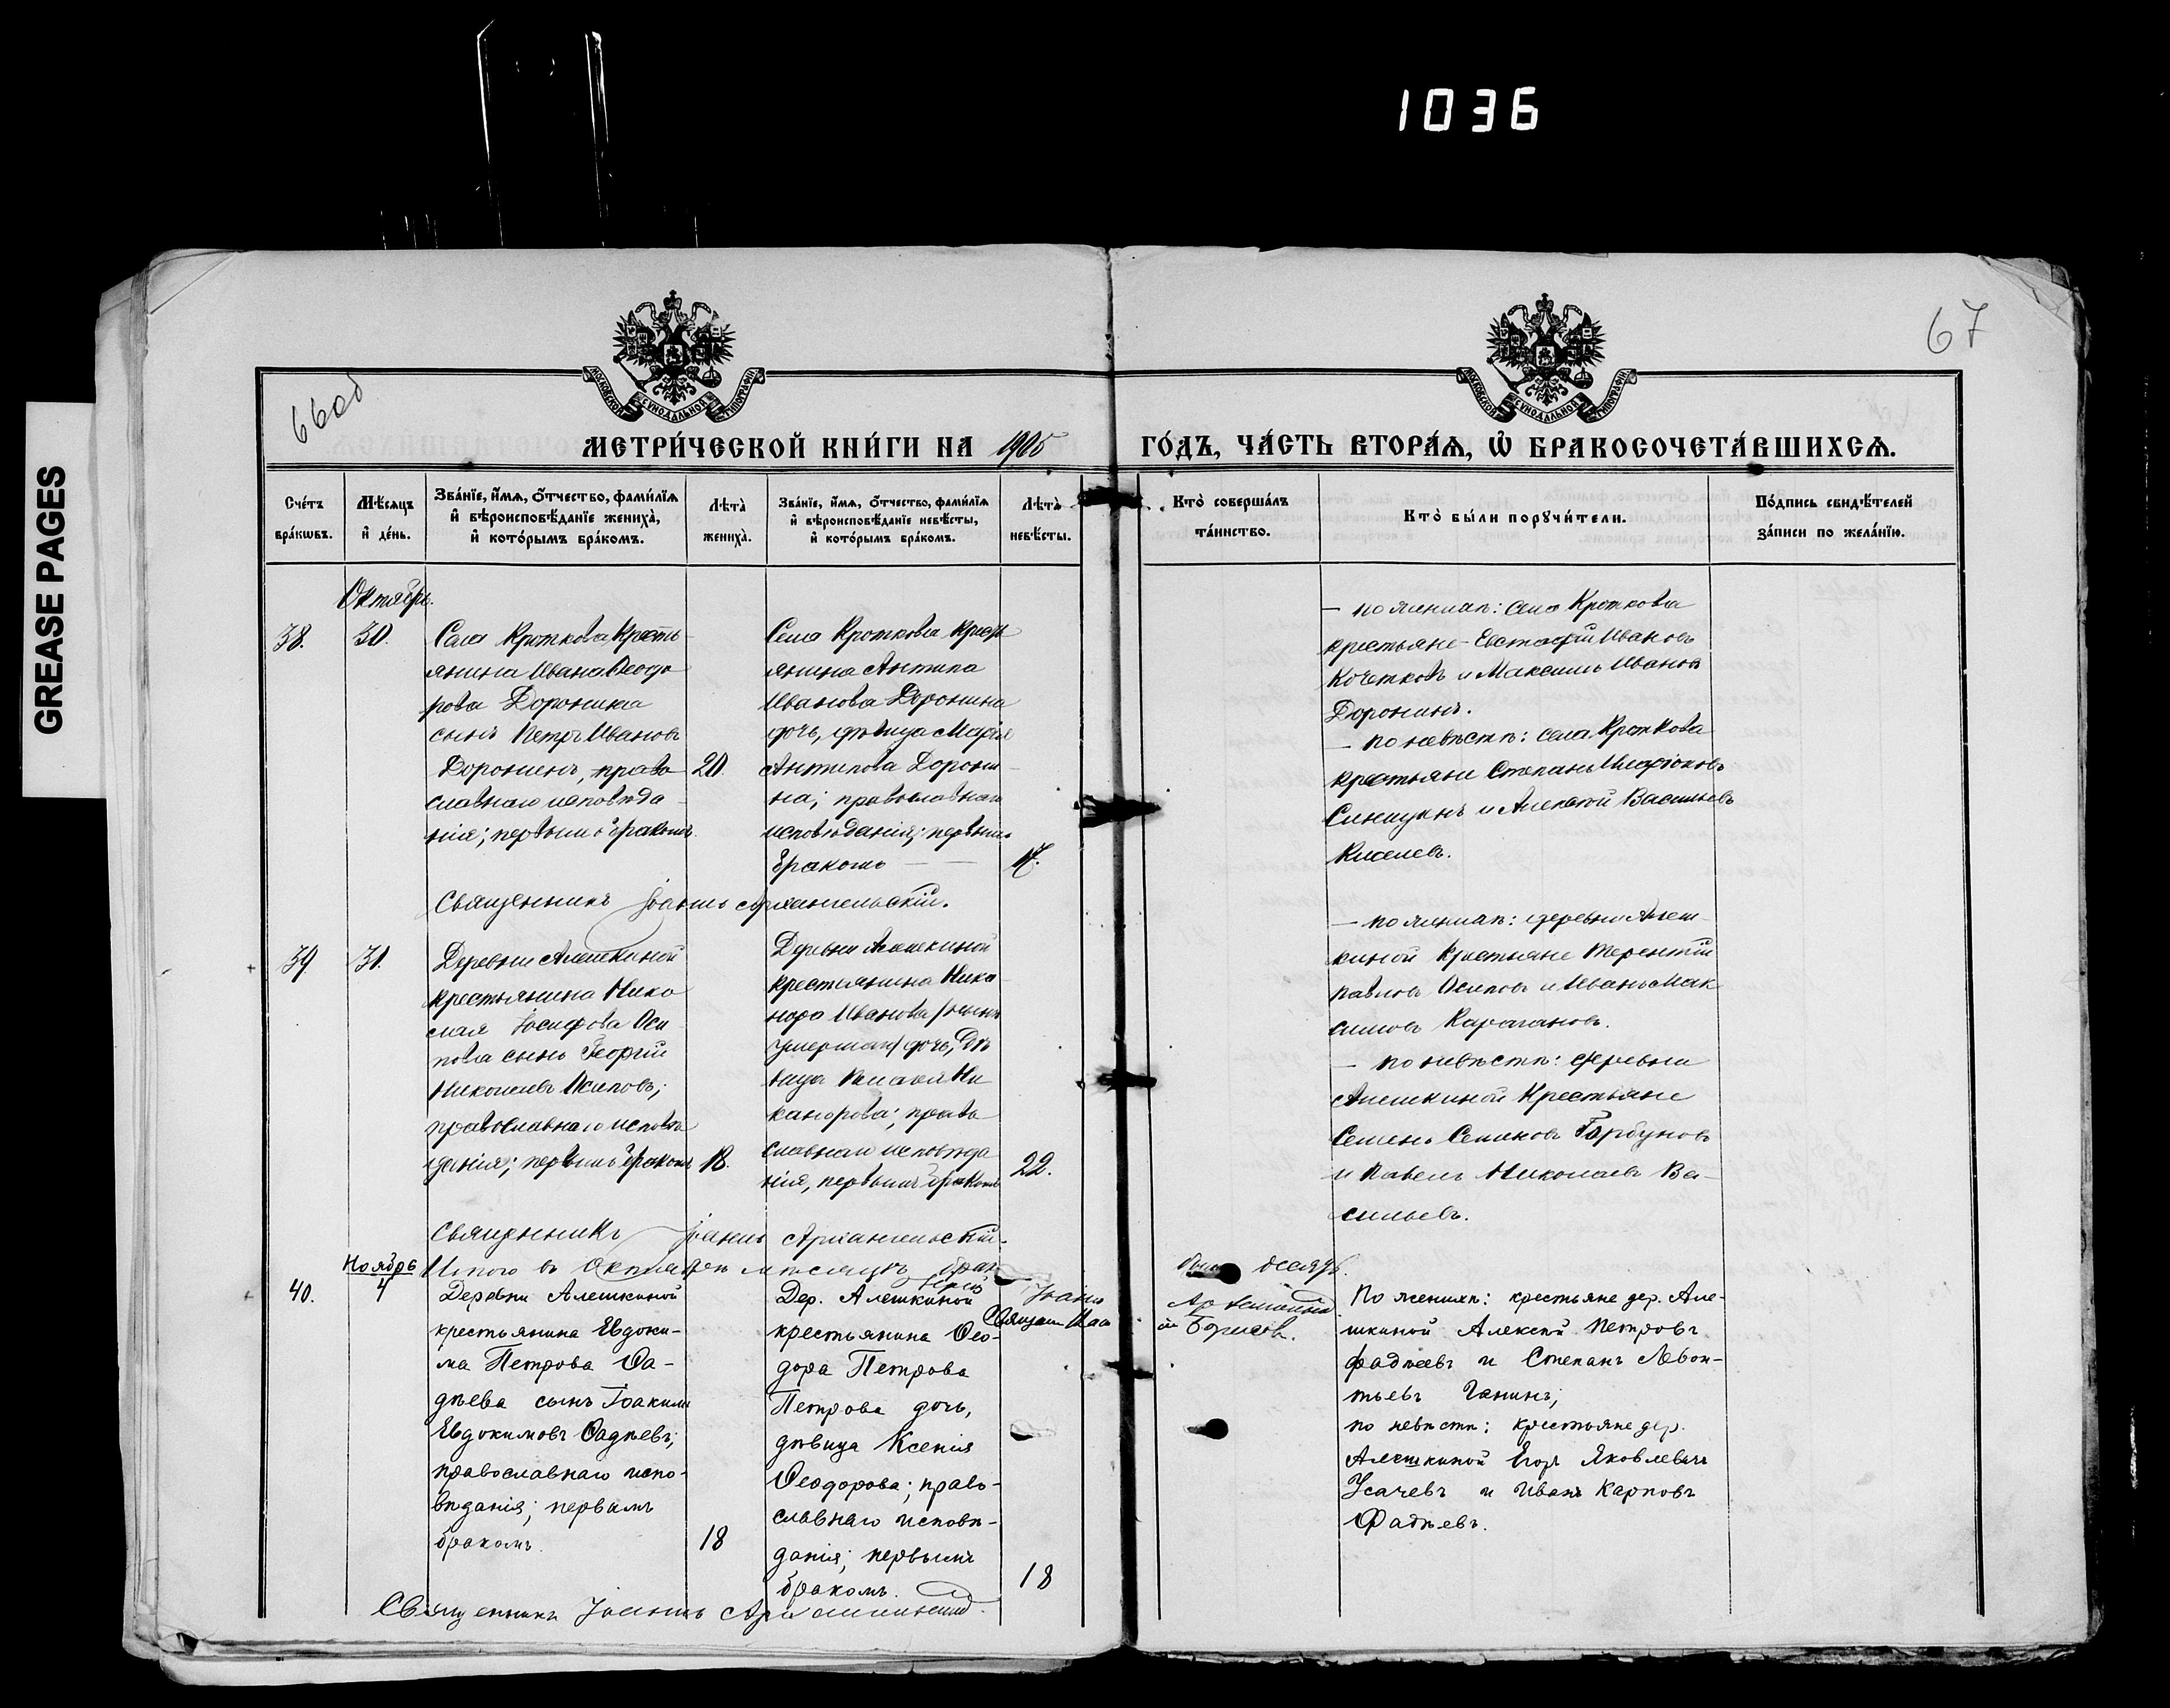 1036
GREASE PAGES
66об
67
МОСКОВСКОЙ СУНОДАЛЬНОЙ ТИПОГРАФІИ
МОСКОВСКОЙ СУНОДАЛЬНОЙ ТИПОГРАФІИ
МЕТРИ́ЧЕСКОЙ КНИ́ГИ НА 1905
ГО́ДЪ, ЧА́СТЬ ВТОРА́Ѧ, Ѡ҆ БРАКОСОЧЕТА́ВШИХСѦ.
Сче́тъ бра́кѡвъ.
Мѣ́сяцъ и҆ де́нь.
Зва́нїе, и҆́мѧ, ѻ҆́тчество, фами́лїѧ
и҆ вѣроисповѣ́данїе жениха̀,
и҆ кото́рымъ бра́комъ.
Лѣта̀ жениха̀.
Зва́нїе, и҆́мѧ, ѻ҆́тчество, фами́лїѧ
и҆ вѣроисповѣ́данїе невѣ́сты,
и҆ кото́рымъ бра́комъ.
Лѣта̀ невѣ́сты.
Кто̀ соверша́лъ
та́инство.
Кто̀ бы́ли порꙋчи́тели.
По́дпись свидѣ́телей
за́писи по жела́нїю.
Октябрь.
38.
30.
Села Кроткова Кресть-
янина Ивана Ѳеодо
рова Доронина
сынъ Петръ Ивановъ
Доронинъ, право
славнаго исповѣда-
нія; первымъ бракомъ.
20.
Села Кроткова Кресть
янина Антипа
Иванова Доронина
дочь, дѣвица Марія
Антипова Дорони-
на; православнаго
исповѣданія; первымъ
бракомъ
17.
— по женихѣ: села Кроткова
крестьяне Евстафій Ивановъ
Кочетковъ и Максимъ Ивановъ
Доронинъ.
— по невѣстѣ: села Кроткова
крестьяне Степанъ
и Алексѣй Васильевъ
Киселевъ.
Священникъ Іоаннъ Архангельскій.
39
31.
Деревни Алешкиной
крестьянина Нико
лая Іосифова Оси
пова сынъ Георгій
Николаевъ Осиповъ;
православнаго исповѣ
данія; первымъ бракомъ
18.
Деревни Алешкиной
крестьянина Ника
нора Иванова
дочь, дѣ
вица Ни
канорова; право
славнаго исповѣда
нія, первымъ бракомъ
22.
— по женихѣ: деревни Алеш-
киной крестьяне Терентій
Павловъ Осиповъ и Иванъ Мак
симовъ Карагановъ.
— по невѣстѣ: деревни
Алешкиной Крестьяне
Семенъ Семеновъ Горбуновъ
и Павелъ Николаевъ Ва-
сильевъ.
Священникъ Іоаннъ Архангельскій.
Итого въ Октябрѣ мѣсяцѣ брак
было десять.
Ноябрь
40.
4
Деревни Алешкиной
крестьянина Евдоки-
ма Петрова Ѳа-
дѣева сынъ Іоакимъ
Евдокимовъ Ѳадѣевъ;
православнаго испо-
вѣданія; первымъ
бракомъ.
18
Дер. Алешкиной
крестьянина Ѳео-
дора Петрова
Петрова дочь,
дѣвица Ксенія
Ѳеодорова; право-
славнаго исповѣ-
данія; первымъ
бракомъ.
18
По женихѣ: крестьяне дер. Але-
шкиной Алексѣй Петровъ
Фадѣевъ и Степанъ Левон-
тьевъ Ганинъ;
по невѣстѣ: крестьяне дер.
Алешкиной Егоръ Яковлевичъ
Усачевъ и Иванъ Карповъ
Фадѣевъ.
Священникъ Іоаннъ Архангельскій.